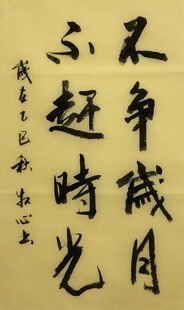 不争歲月
不趕時光
歲在乙巳秋牧心书